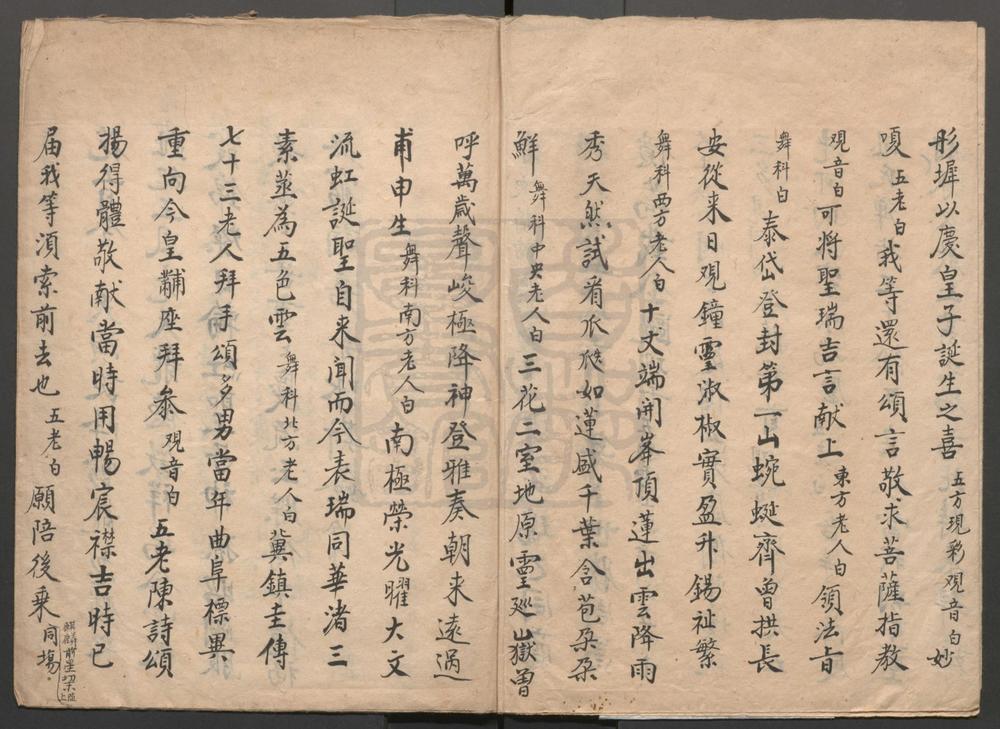 彤墀以慶皇子誕生之喜五方現彩觀音白妙
嗄五老白我等還有頌言敬求菩薩指教
觀音白可將聖瑞吉言献上東方老人白領法旨
舞科白泰岱登封第一山蜿蜒齊曾拱長
安從来日观鐘靈淑椒實盈升錫祉繁
舞科西方老人白十丈端開峯頂蓮出雲降雨
秀天然試看爪瓞如蓮盛千葉含苞朶朶
鮮舞科中央老人白三花二室地原靈廵嶽曽
呼萬歲聲峻極降神登雅奏朝来遠過
甫申生舞科南方老人白南極榮光曜大文
流虹誕聖自来聞而今表瑞同華渚三
素蒸為五色雲舞科北方老人白冀鎮圭傳
七十三老人拜手頌多男當年曲阜標異
重向今皇黼座拜叅观音白五老陳詩頌
揚得體敬献當時用暢宸襟吉時已
届我等湏索前去也五老白願陪後乗同塲